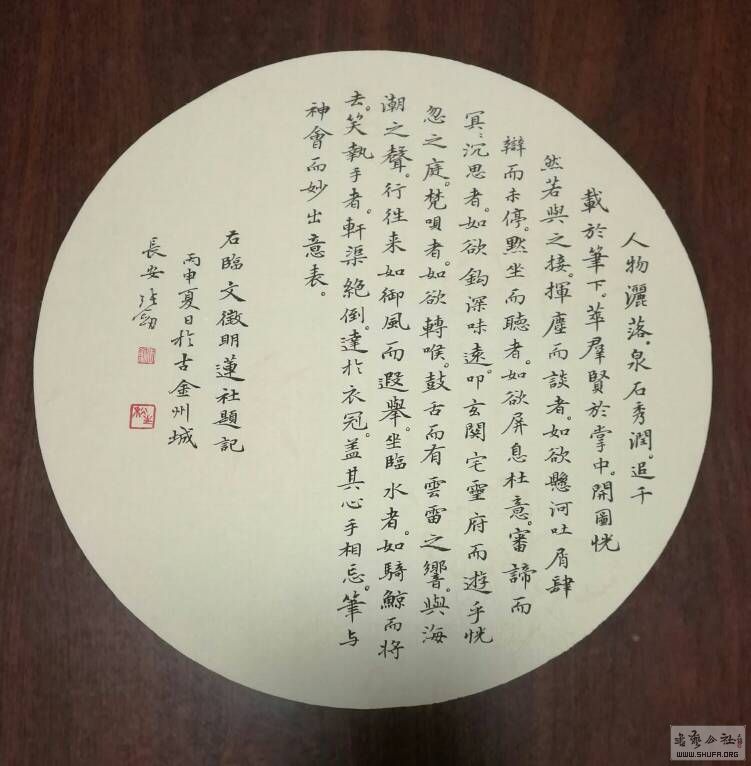 人物灑落。泉石秀潤。追千
載於筆下。萃羣賢於掌中。開圖恍
然若與之接。揮麈而談者。如欲懸河吐屑肆
辯而未停。默坐而聽者。如欲屏息杜意。審諦而
冥〻沉思者。如欲鈎深味遠。叩玄関宅靈府而遊乎恍
忽之庭。梵唄者。如欲轉喉。鼓舌而有雲雷之響。與海
潮之聲。行往来如御風而遐舉。坐臨水者。如騎鯨而将
去。笑執手者。軒渠絶倒。達於衣冠。盖其心手相忘。筆与
神會而妙出意表。
右臨文徵明蓮社題記
丙申夏日於古金州城
長安
書藝公社
WWW.SHUFA.ORG